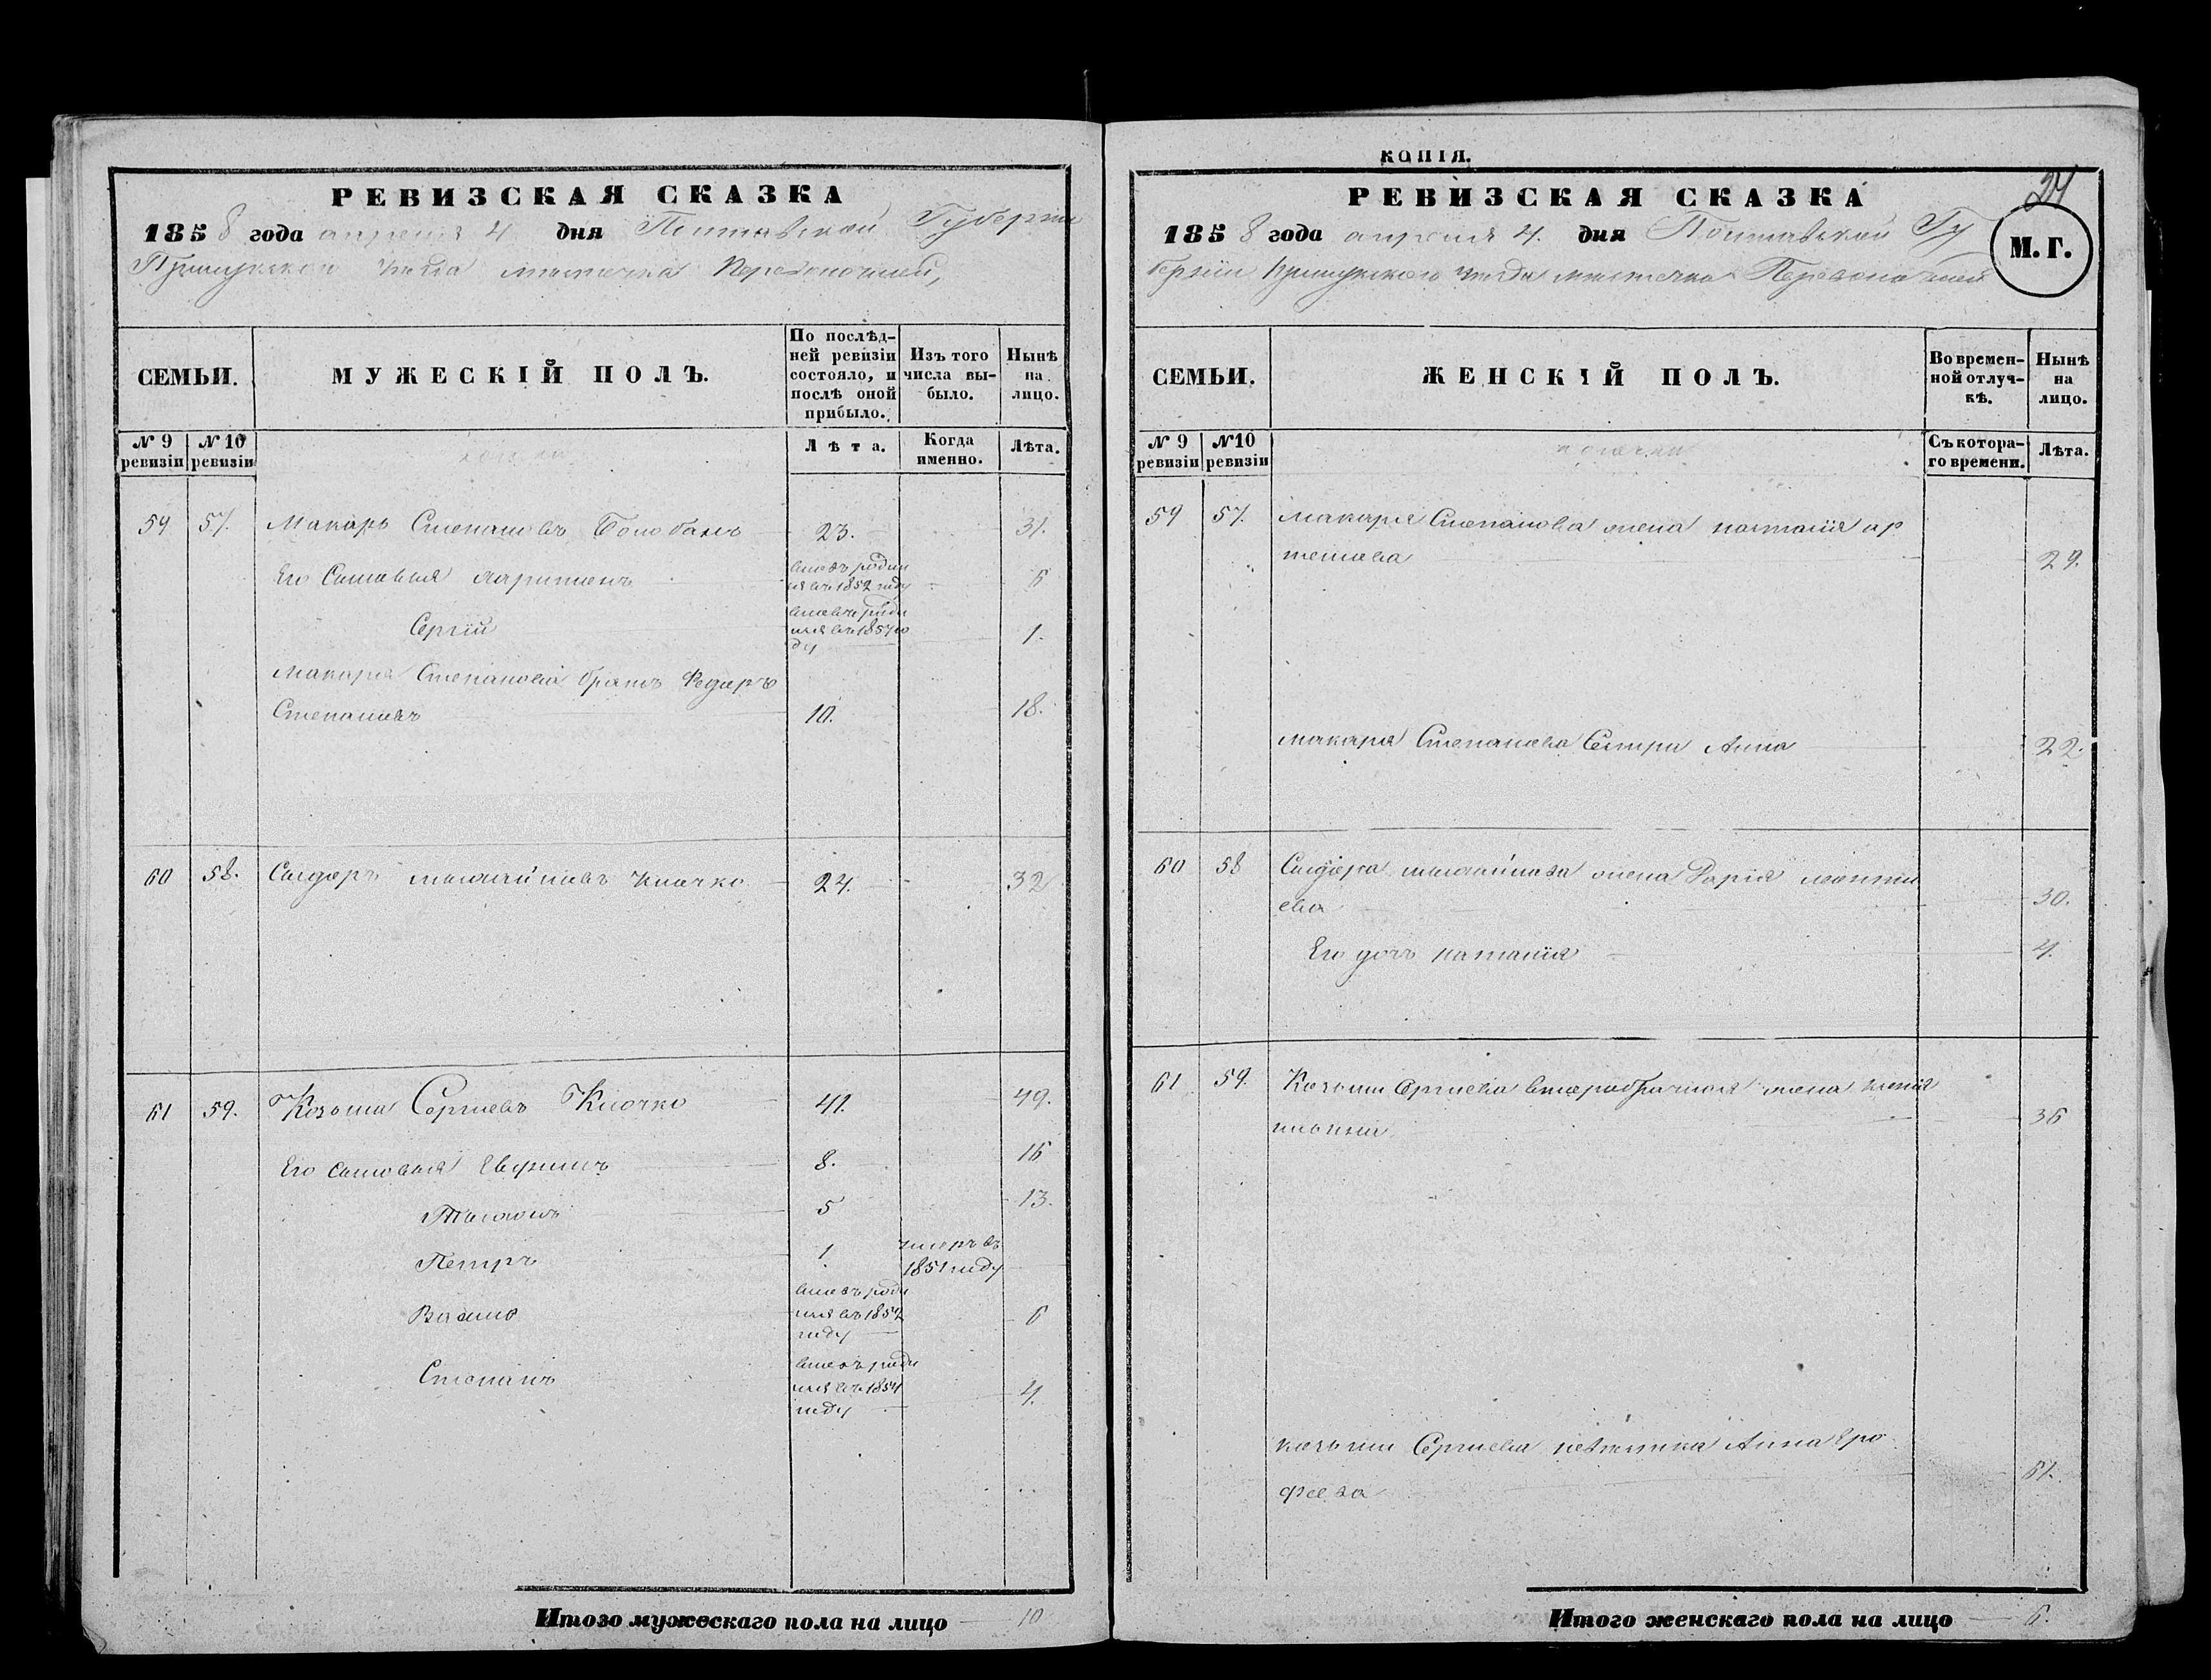 РЕВИЗСКАЯ СКАЗКА
1858 года апреля 4 дня Полтавской Губернии
Прилукскаго уезда местечка Переволочной,
СЕМЬИ.
МУЖЕСКІЙ ПОЛЪ.
По послѣд-
ней ревизіи
состояло, и
послѣ оной
прибыло.
Изъ того
числа вы-
было.
Нынѣ
на
лицо.
№ 9
ревизіи
№ 10
ревизіи
Лѣта.
Когда
именно.
Лѣта.
59 57. Макаръ Степановъ 23. 31.
Его Сыновья Харитонъ
вновь роди
ся въ 1852 году
6
Сергій
вновь роди
лся въ 1857 го
ду
1.
Макара Степанова братъ Федоръ
Степановъ 10. 18.
60 58. Сидоръ Клочко 24. 32
61 59. Козьма Сергиевъ Клочко 41. 49.
Его сыновья Евфимъ 8. 16
5 13.
Петръ 1.
умеръ въ
1851 году
вновь роди
лся въ 1852
году
6
Степанъ
вновь роди
лся въ 1854
году
4.
Итого мужескаго пола на лицо 10
КОПІЯ.
РЕВИЗСКАЯ СКАЗКА
1858 года апреля 4. дня Полтавской Гу
берніи Прилукскаго уезда местечка Переволочной
М. Г.
СЕМЬИ.
ЖЕНСКІЙ ПОЛЪ.
Во времен-
ной отлуч-
кѣ.
Нынѣ
на
лицо.
№ 9
ревизіи
№ 10
ревизіи
Съ котора-
го времени.
Лѣта.
59 57. Макара Степанова жена Наталія ар
темова 29.
Макара Степанова Сестра Анна 22.
60 58 Сидора жена Дарія леонти
ева 30.
Его дочь наталія 4.
61 59. Козьми Сергиева второбрачная жена
36
козьми Сергиева невестка Анна Еро
феева
Итого женскаго пола на лицо 6.